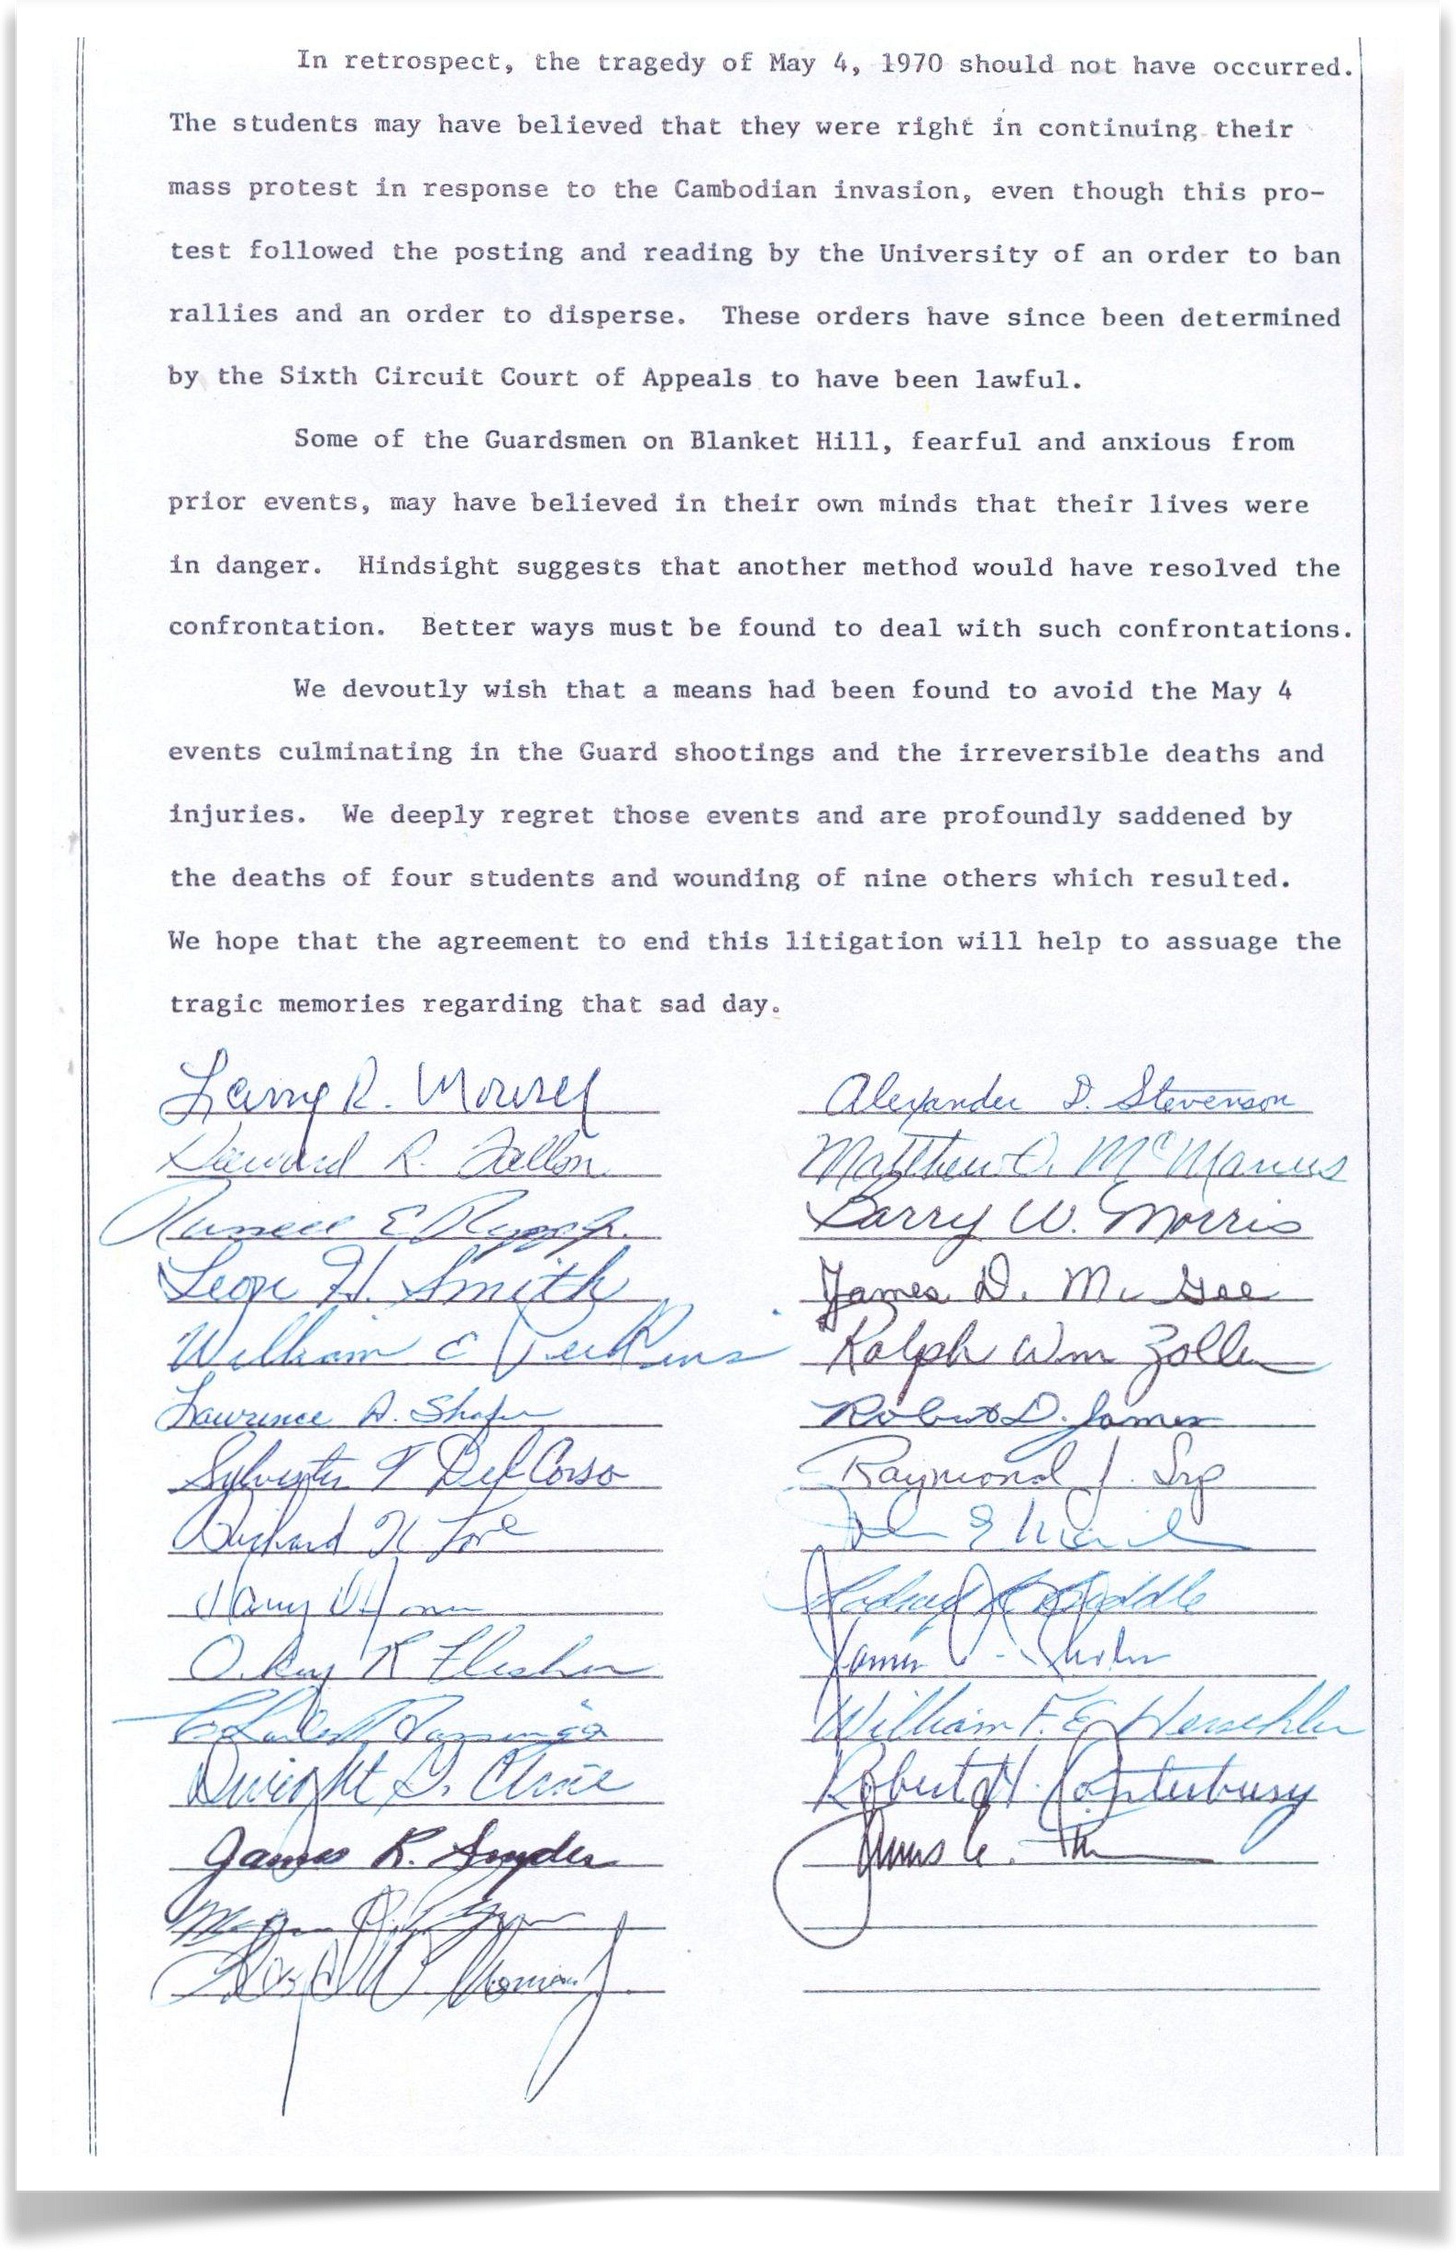 In retrospect, the tragedy of May 4, 1970 should not have occurred.
The students may have believed that they were right in continuing their
mass protest in response to the Cambodian invasion, even though this pro-
test followed the posting and reading by the University of an order to ban
rallies and an order to disperse. These orders have since been determined
by the Sixth Circuit Court of Appeals to have been lawful.
Some of the Guardsmen on Blanket Hill, fearful and anxious from
prior events, may have believed in their own minds that their lives were
in danger. Hindsight suggests that another method would have resolved the
confrontation. Better ways must be found to deal with such confrontations.
We devoutly wish that a means had been found to avoid the May 4
events culminating in the Guard shootings and the irreversible deaths and
injuries. We deeply regret those events and are profoundly saddened by
the deaths of four students and wounding of nine others which resulted.
We hope that the agreement to end this litigation will help to assuage the
tragic memories regarding that sad day.
Larry R. Mowrer
R. Fallon
Leon H. Smith
William E Perkins
Lawrence A. Shafer
Sylvester T Del Corso
Richard K Love
James R. Snyder
Alexander D. Stevenson
Matthew J. McManus
Barry W. Morris
James D. McGee
Ralph Wm Zoller
Robert D. James
Raymond J. Srp
William F. E. Herschler
Robert H. Canterbury